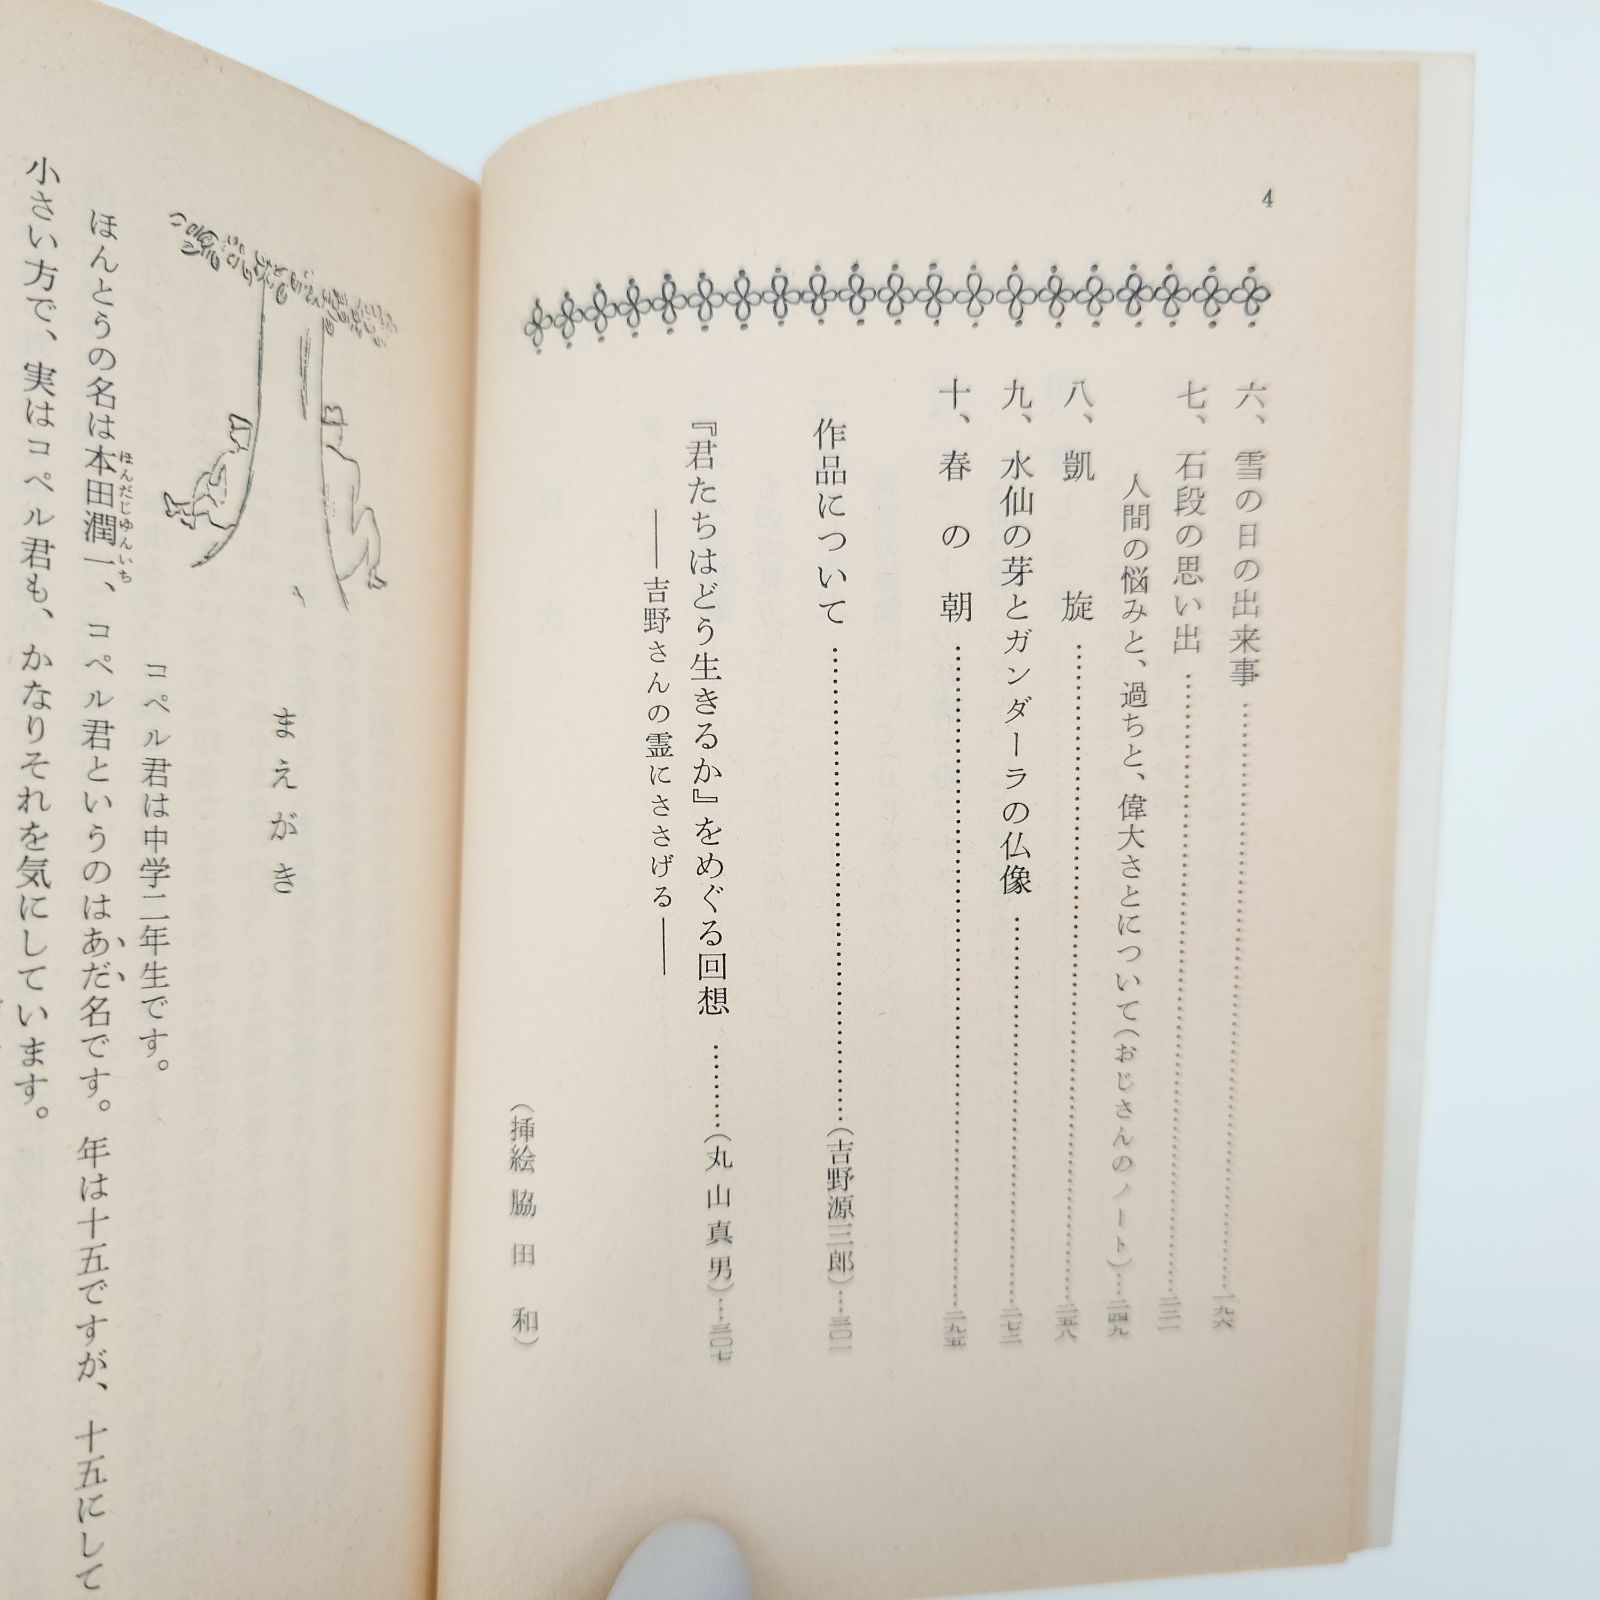 4
六、雪の日の出来事……一九六
七、石段の思い出……二三一
人間の悩みと、過ちと、偉大さとについて（おじさんのノート）……二四九
八、凱旋……二五八
九、水仙の芽とガンダーラの仏像……二七二
十、春の朝……二九五
作品について……（吉野源三郎）……三〇一
『君たちはどう生きるか』をめぐる回想……（丸山真男）……三〇七
――吉野さんの霊にささげる――
（挿絵 脇田 和）
まえがき
コペル君は中学二年生です。
ほんとうの名は本田潤一、コペル君というのはあだ名です。年は十五ですが、十五にして
ほんだじゆんいち
小さい方で、実はコペル君も、かなりそれを気にしています。